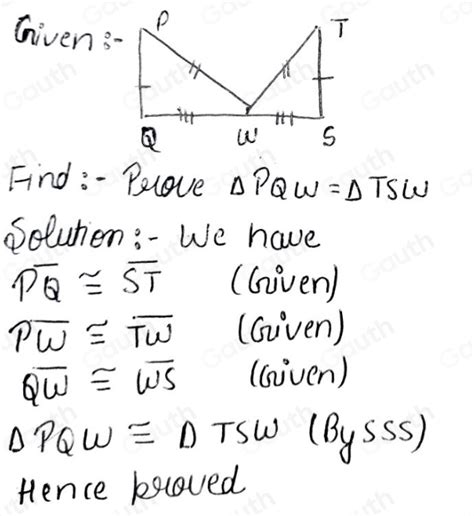 Given :-
P
T
Q
W
S
Find :- Prove Δ PQW = Δ TSW
Solution :- We have
P̅Q̅ ≅ S̅T̅ (Given)
P̅W̅ ≅ T̅W̅ (Given)
Q̅W̅ ≅ W̅S̅ (Given)
Δ PQW ≅ Δ TSW (By SSS)
Hence proved